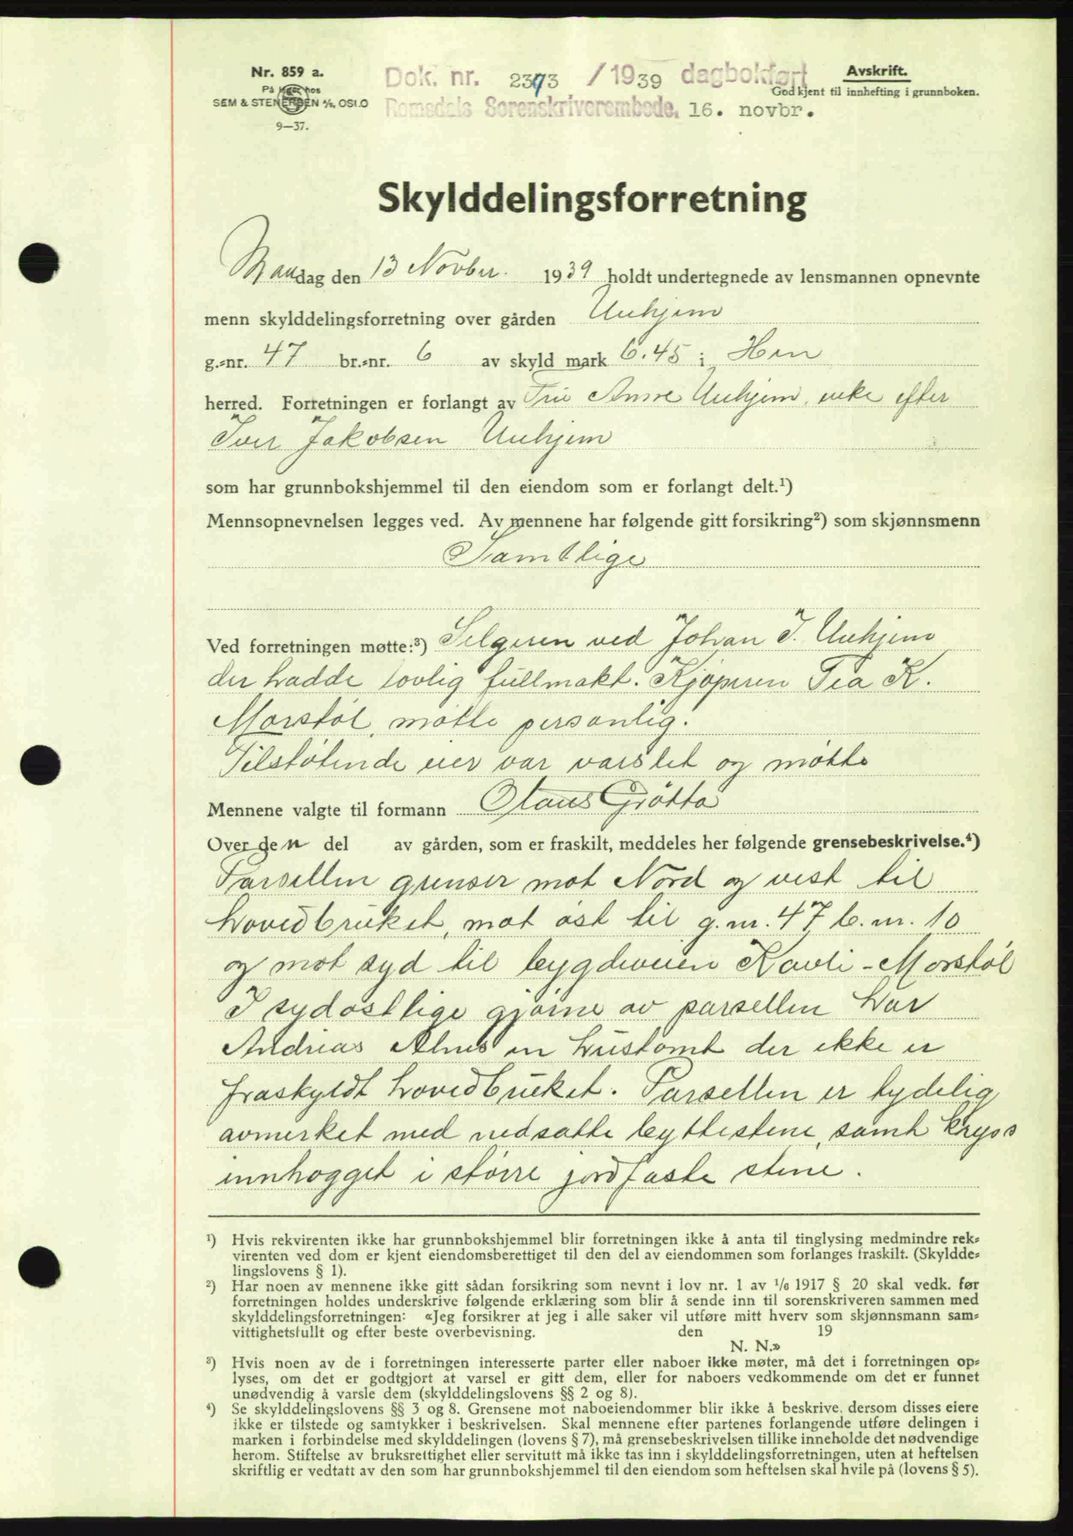 Nr. 859 a.
På lager hos
SEM & STENERSEN A/S, OSLO
9—37.
Dok. nr. 2373 / 1939 dagbokført
Romsdals Sorenskriverembede. 16. novbr.
Avskrift.
Godkjent til innhefting i grunnboken.
Skylddelingsforretning
Mandag den 13 Novber. 1939 holdt undertegnede av lensmannen opnevnte
menn skylddelingsforretning over gården Unhjem
g.=nr. 47 br.=nr. 6 av skyld mark 6.45 i Hen
herred. Forretningen er forlangt av Fru Anne Unhjem, enke efter
Iver Jakobsen Unhjem
som har grunnbokshjemmel til den eiendom som er forlangt delt.¹)
Mennsopnevnelsen legges ved. Av mennene har følgende gitt forsikring²) som skjønnsmenn
Samtlige
Ved forretningen møtte:³) Selgeren ved Johan I. Unhjem
der hadde lovlig fullmakt. Kjøperen Tea K.
Morstøl, møtte personlig.
Tilstøtende eier var varslet og møtte
Mennene valgte til formann Olaus Grøtta
Over den del av gården, som er fraskilt, meddeles her følgende grensebeskrivelse.⁴)
Parsellen grenser mot Nord og vest til
hovedbruket, mot øst til g.nr. 47 b.nr. 10
og mot syd til bygdeveien Kavli - Morstøl
I sydøstlige gjørne av parsellen har
Andreas Alnes en hustomt der ikke er
fraskyldt hovedbruket. Parsellen er tydelig
avmerket med nedsatte byttestene, samt kryss
innhogget i större jordfaste stene.
¹) Hvis rekvirenten ikke har grunnbokshjemmel blir forretningen ikke å anta til tinglysing medmindre rek=
virenten ved dom er kjent eiendomsberettiget til den del av eiendommen som forlanges fraskilt. (Skyldde=
lingslovens § 1).
²) Har noen av mennene ikke gitt sådan forsikring som nevnt i lov nr. 1 av 1/6 1917 § 20 skal vedk. før
forretningen holdes underskrive følgende erklæring som blir å sende inn til sorenskriveren sammen med
skylddelingsforretningen: «Jeg forsikrer at jeg i alle saker vil utføre mitt hverv som skjønnsmann sam=
vittighetsfullt og efter beste overbevisning. den 19
N. N.»
³) Hvis noen av de i forretningen interesserte parter eller naboer ikke møter, må det i forretningen op=
lyses, om det er godtgjort at varsel er gitt dem, eller for naboers vedkommende om det er funnet
unødvendig å varsle dem (skylddelingslovens §§ 2 og 8).
⁴) Se skylddelingslovens §§ 3 og 8. Grensene mot naboeiendommer blir ikke å beskrive, dersom disses eiere
ikke er tilstede og samtykker i beskrivelsen. Skal mennene efter partenes forlangende utføre delingen i
marken i forbindelse med skylddelingen (lovens § 7), må grensebeskrivelsen tillike inneholde det nødvendige
herom. Stiftelse av bruksrettighet eller servitutt må ikke tas inn i skylddelingsforretningen, uten at heftelsen
skriftlig er vedtatt av den som har grunnbokshjemmel til den eiendom som heftelsen skal hvile på (lovens § 5).